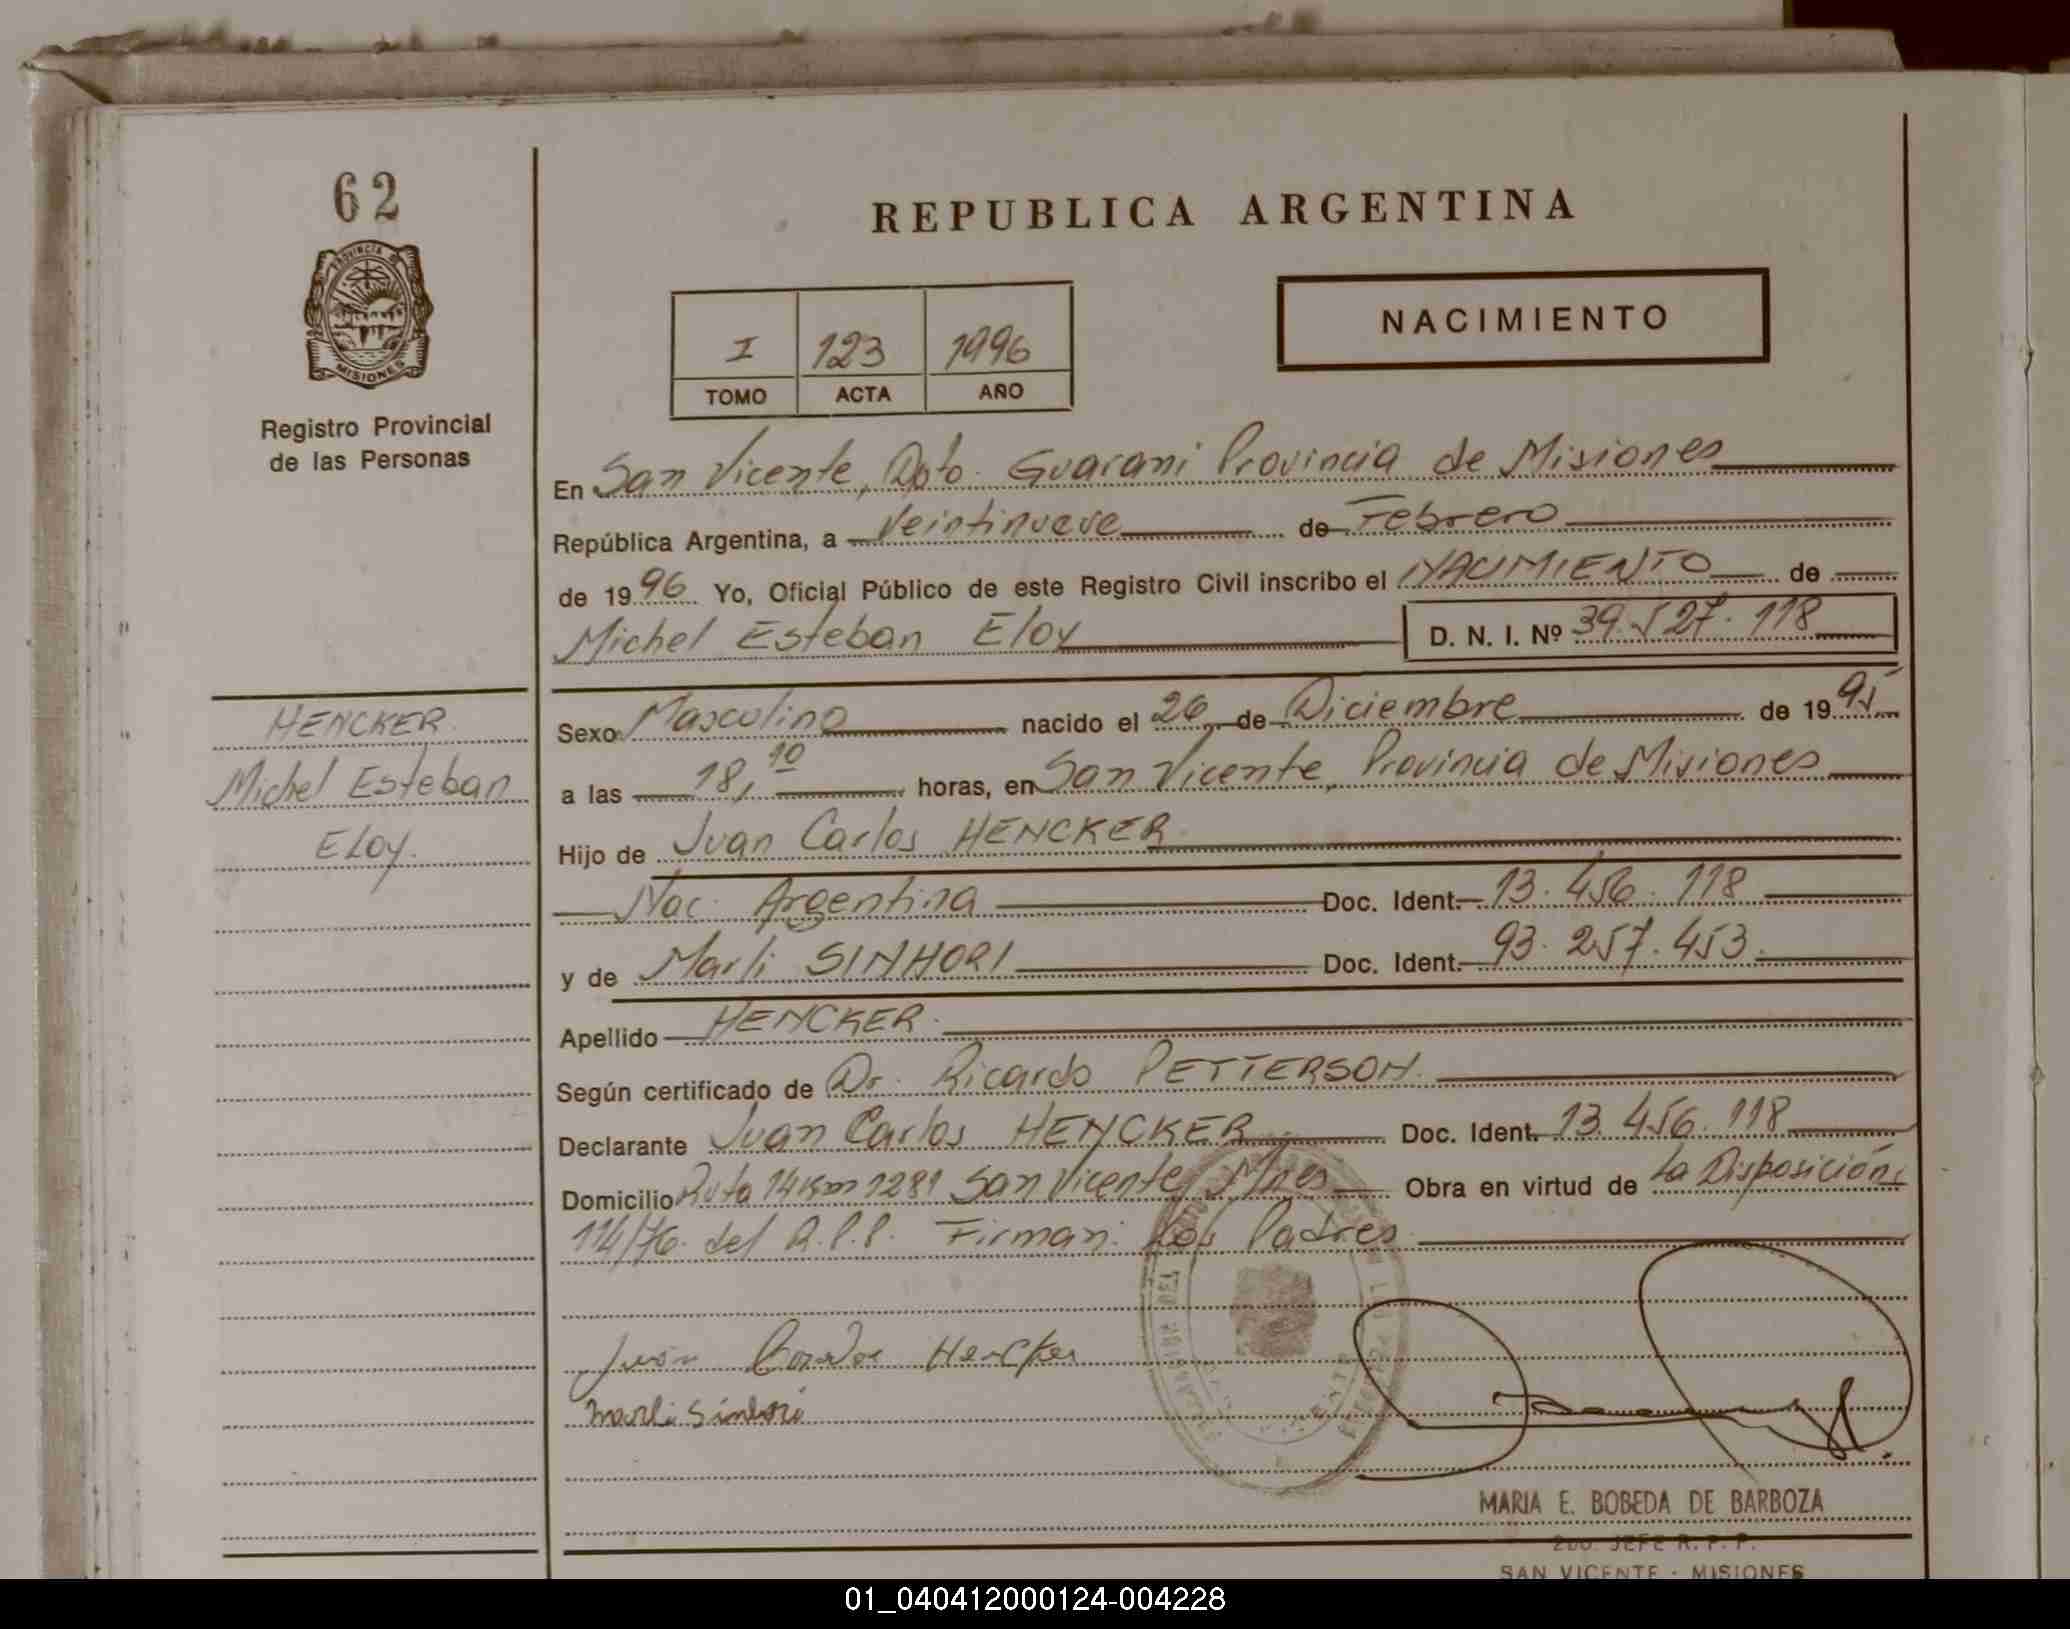 62
PROVINCIA DE
MISIONES
Registro Provincial
de las Personas
REPUBLICA ARGENTINA
I 123 1996
TOMO ACTA AÑO
NACIMIENTO
En San Vicente, Dpto. Guarani Provincia de Misiones
República Argentina, a Veintinueve de Febrero
de 1996 Yo, Oficial Público de este Registro Civil inscribo el NACIMIENTO de
Michel Esteban Eloy D. N. I. Nº 39.527.118
HENCKER
Michel Esteban
ELOY.
Sexo Masculino nacido el 26 de Diciembre de 1995
a las 18,10 horas, en San Vicente, Provincia de Misiones
Hijo de Juan Carlos HENCKER
Nac. Argentina Doc. Ident. 13.456.118
y de Marli SINHORI Doc. Ident. 93.257.453
Apellido HENCKER.
Según certificado de Dr. Ricardo PETTERSON.
Declarante Juan Carlos HENCKER Doc. Ident. 13.456.118
Domicilio Ruta 14 Km 1281 San Vicente Mnes Obra en virtud de La Disposición
114/76. del R.P.P. Firman: Los Padres
Juan Carlos Hencker
Marli Sinhori
MARIA E. BOBEDA DE BARBOZA
2DO. JEFE R. P. P.
SAN VICENTE - MISIONES
01_040412000124-004228